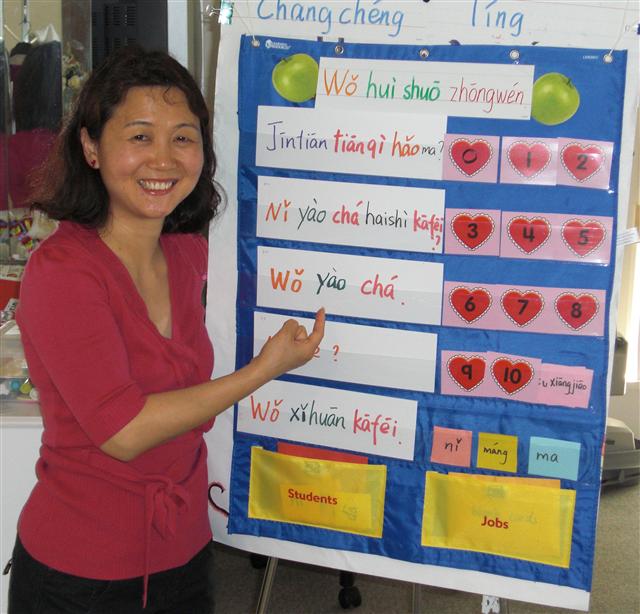 Chang chéng Tíng
Wǒ huì shuō zhōngwén
Jīntiān tiānqì hǎo ma?
0 1 2
Nǐ yào chá haishì kāfēi?
3 4 5
Wǒ yào chá.
6 7 8
?
9 10 xiāngjiāo
Wǒ xǐhuān kāfēi.
nǐ máng ma
Students
Jobs